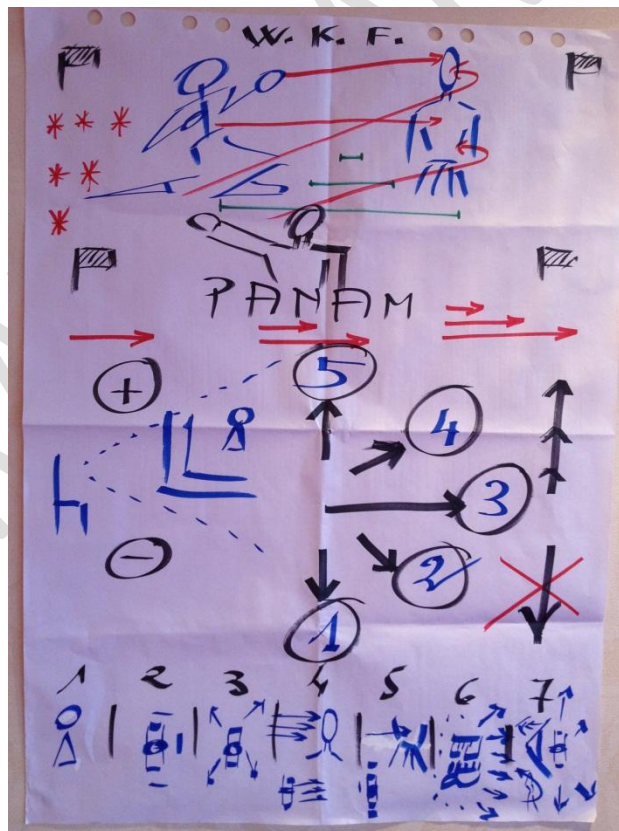 W. K. F.
PANAM
+
5
4
3
-
2
1
1 2 3 4 5 6 7